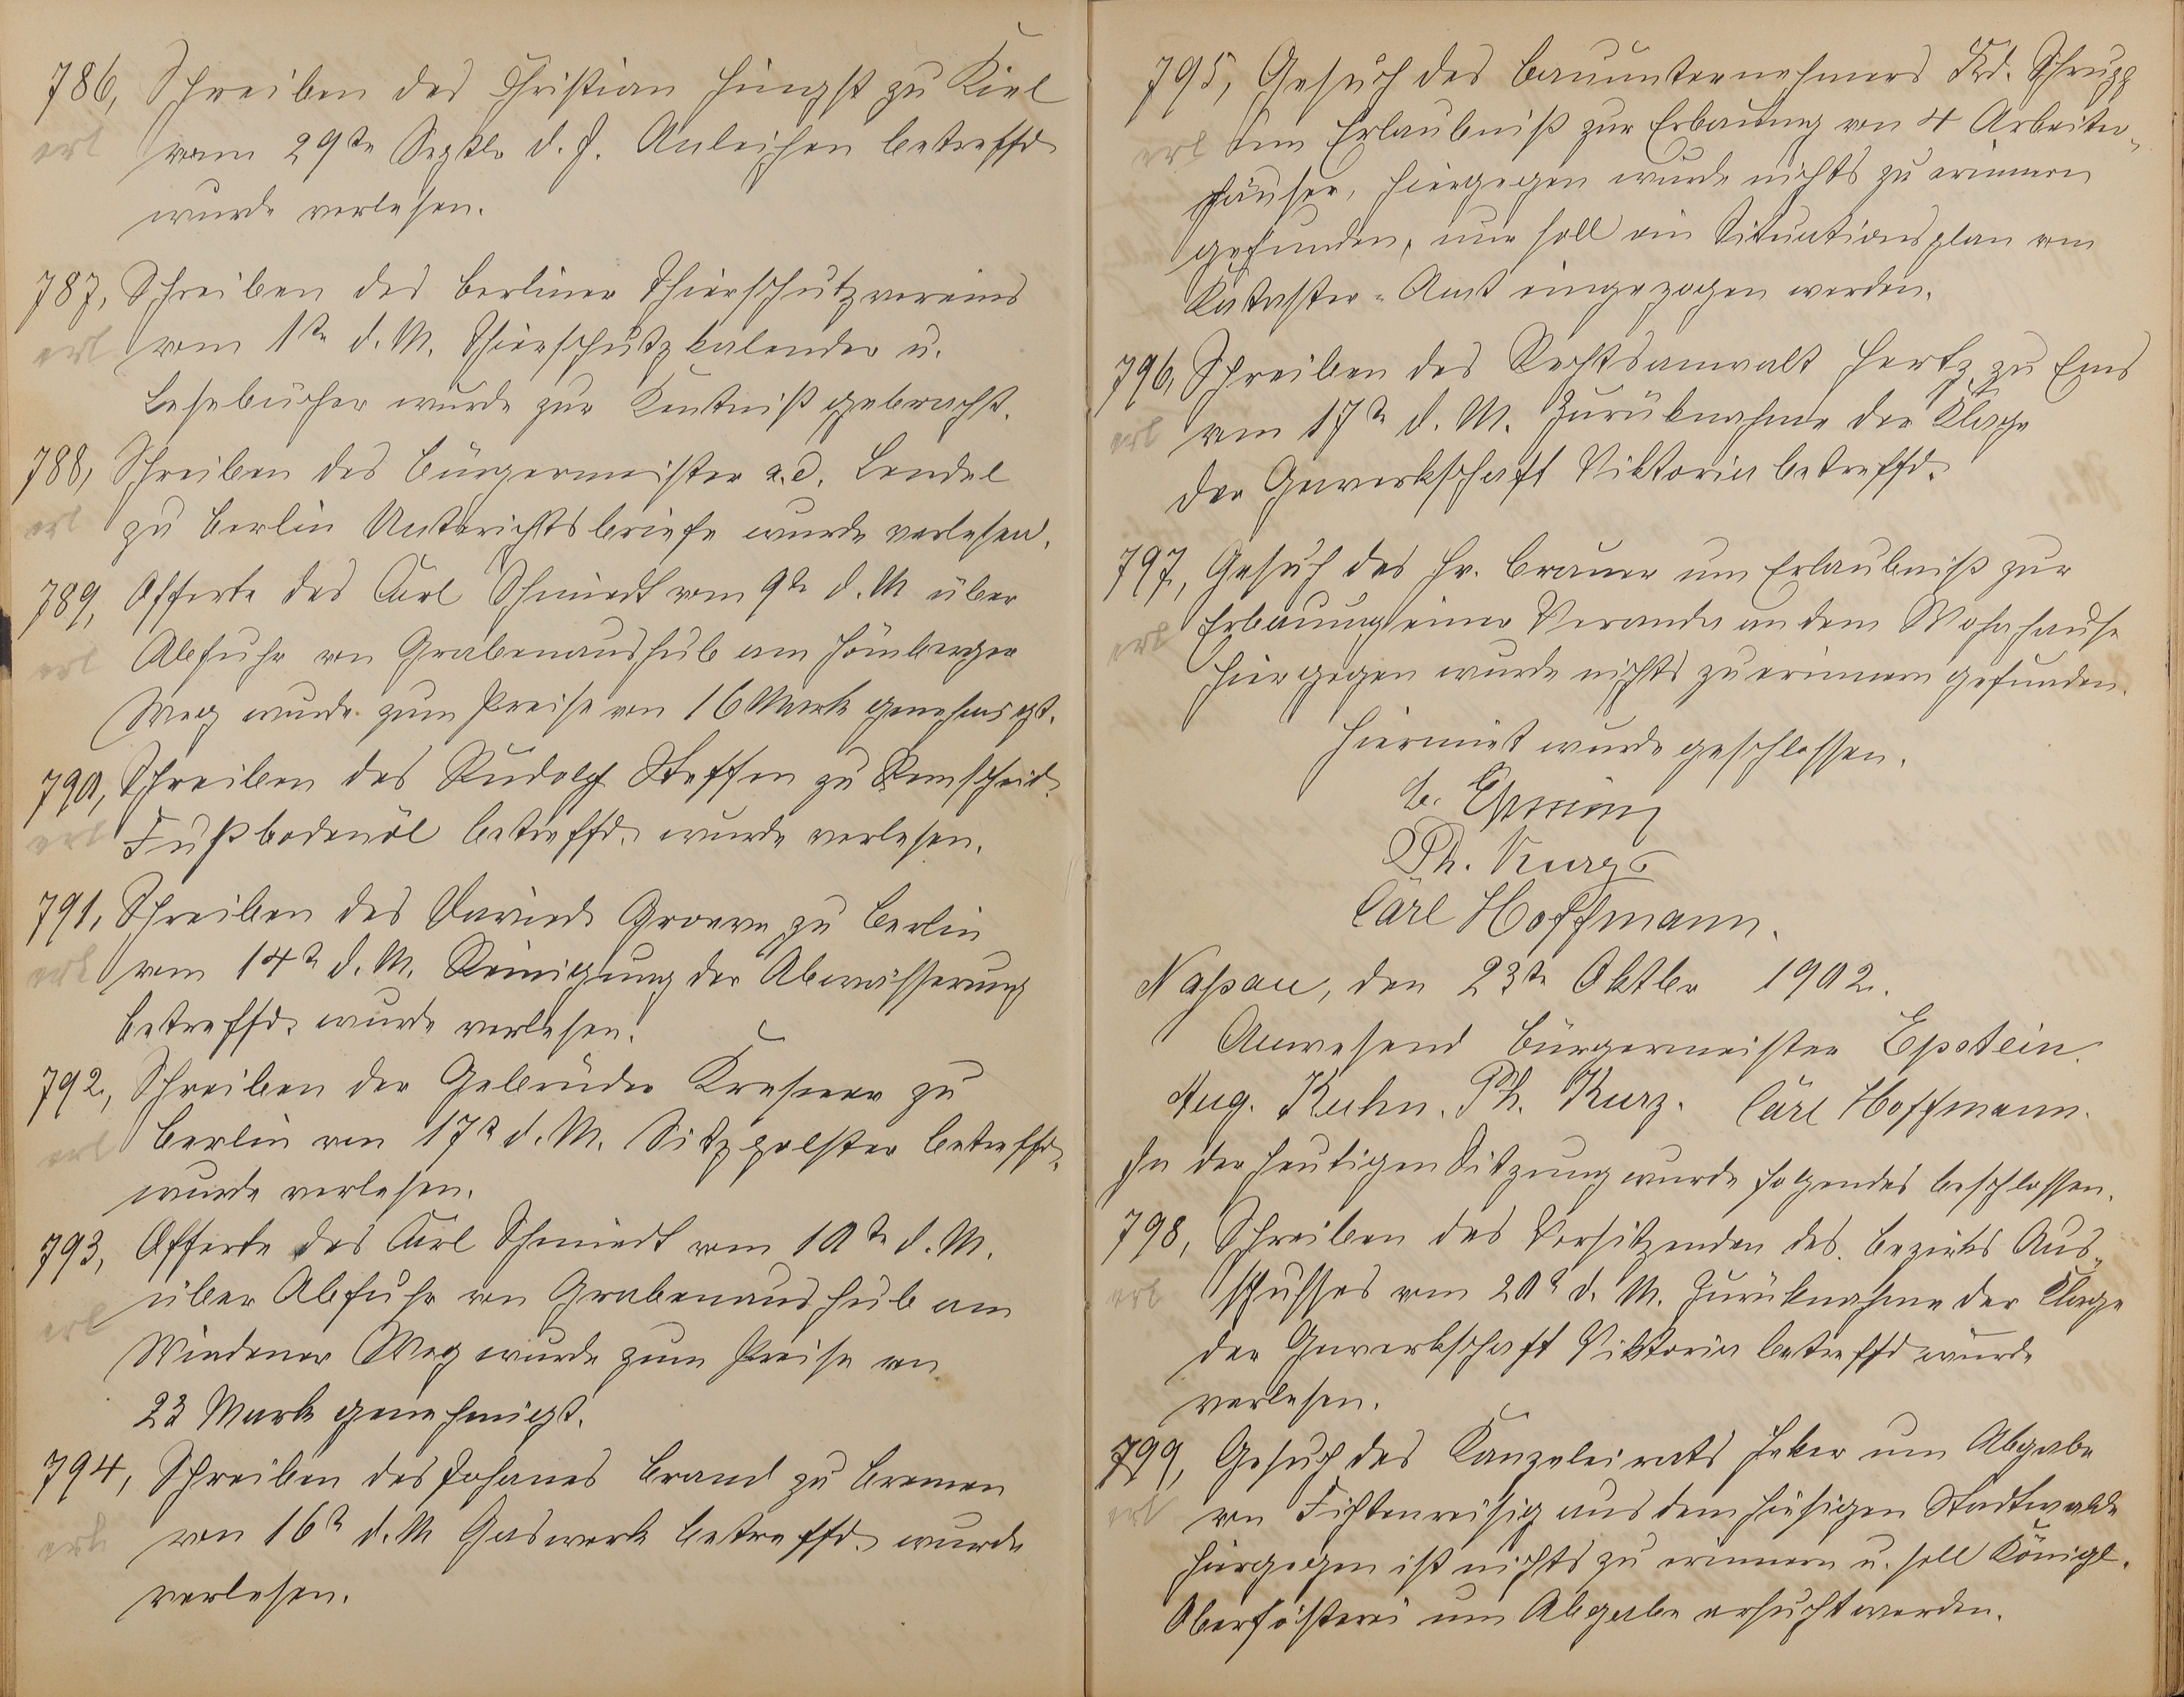 786, Schreiben des Christian Hingst zu Kiel
erl vom 29te Septbr d. J. Anleihen betreffd
wurde verlesen.
787, Schreiben des Berliner Thierschutzvereins
erl vom 1te d. M. Thierschutzkalender u.
Lesebücher wurde zur Kentniß gebracht.
788, Schreiben des Bürgermeister a.D. Lendel
erl zu Berlin Unterichtsbriefe wurde verlesen.
789, Offerte des Carl Schmidt vom 9te d. M über
erl Abfuhr von Grabenaushub am Hömberger
Weg wurde zum Preise von 16 Mark genehmigt.
790, Schreiben des Rudolf Steffen zu Remscheid
erl Fußbodenöl betreffd. wurde verlesen.
791, Schreiben des David Grove zu Berlin
erl vom 14te d. M. Reinigung der Abwässerung
betreffd. wurde verlesen.
792, Schreiben der Gebrüder zu
erl Berlin von 17te d. M. Sitzpolster betreffd.
wurde verlesen.
793, Offerte des Carl Schmidt vom 10te d. M.
erl über Abfuhr von Grabenaushub am
Windener Weg wurde zum Preise von
23 Mark genehmigt.
794, Schreiben des Johanes Brand zu Bremen
erl von 16te d. M Gaswerk betreffd. wurde
verlesen.
795, Gesuch des Bauunternehmers Frd. Schrupp
erl um Erlaubniß zur Erbauung von 4 Arbeiter-
häuser, hiergegen wurde nichts zu erinnern
gefunden, nur soll ein Situationsplan vom
Kataster-Amt eingezogen werden.
796, Schreiben des Rechtsanwalt Hertz zu Ems
erl vom 17te d. M. Zurüknahme der Klage
der Gewerkschaft Viktoria betreffd.
797, Gesuch des Hr. Brauer um Erlaubniß zur
erl Erbauung einer Veranda an dem Wohnhause
hiergegen wurde nichts zu erinnern gefunden.
Hiermit wurde geschlossen.
Ph. Kurz
Carl Hoffmann.
Nassau, den 23te Oktbr 1902.
Anwesend Bürgermeister Epstein.
Aug. Kuhn. Ph. Kurz. Carl Hoffmann.
In der heutigen Sitzung wurde folgendes beschlossen.
798, Schreiben des Vorsitzenden des Bezirks Aus-
erl schusses vom 20te d. M. Zurüknahme der Klage
der Gewerkschaft Viktoria betreffd wurde
verlesen.
799, Gesuch des Kanzleirats um Abgabe
erl von Fichtenreisig aus dem hiesigen Stadtwalde
hiergegen ist nichts zu erinnern u. soll Königl.
Oberfösterei um Abgabe ersucht werden.